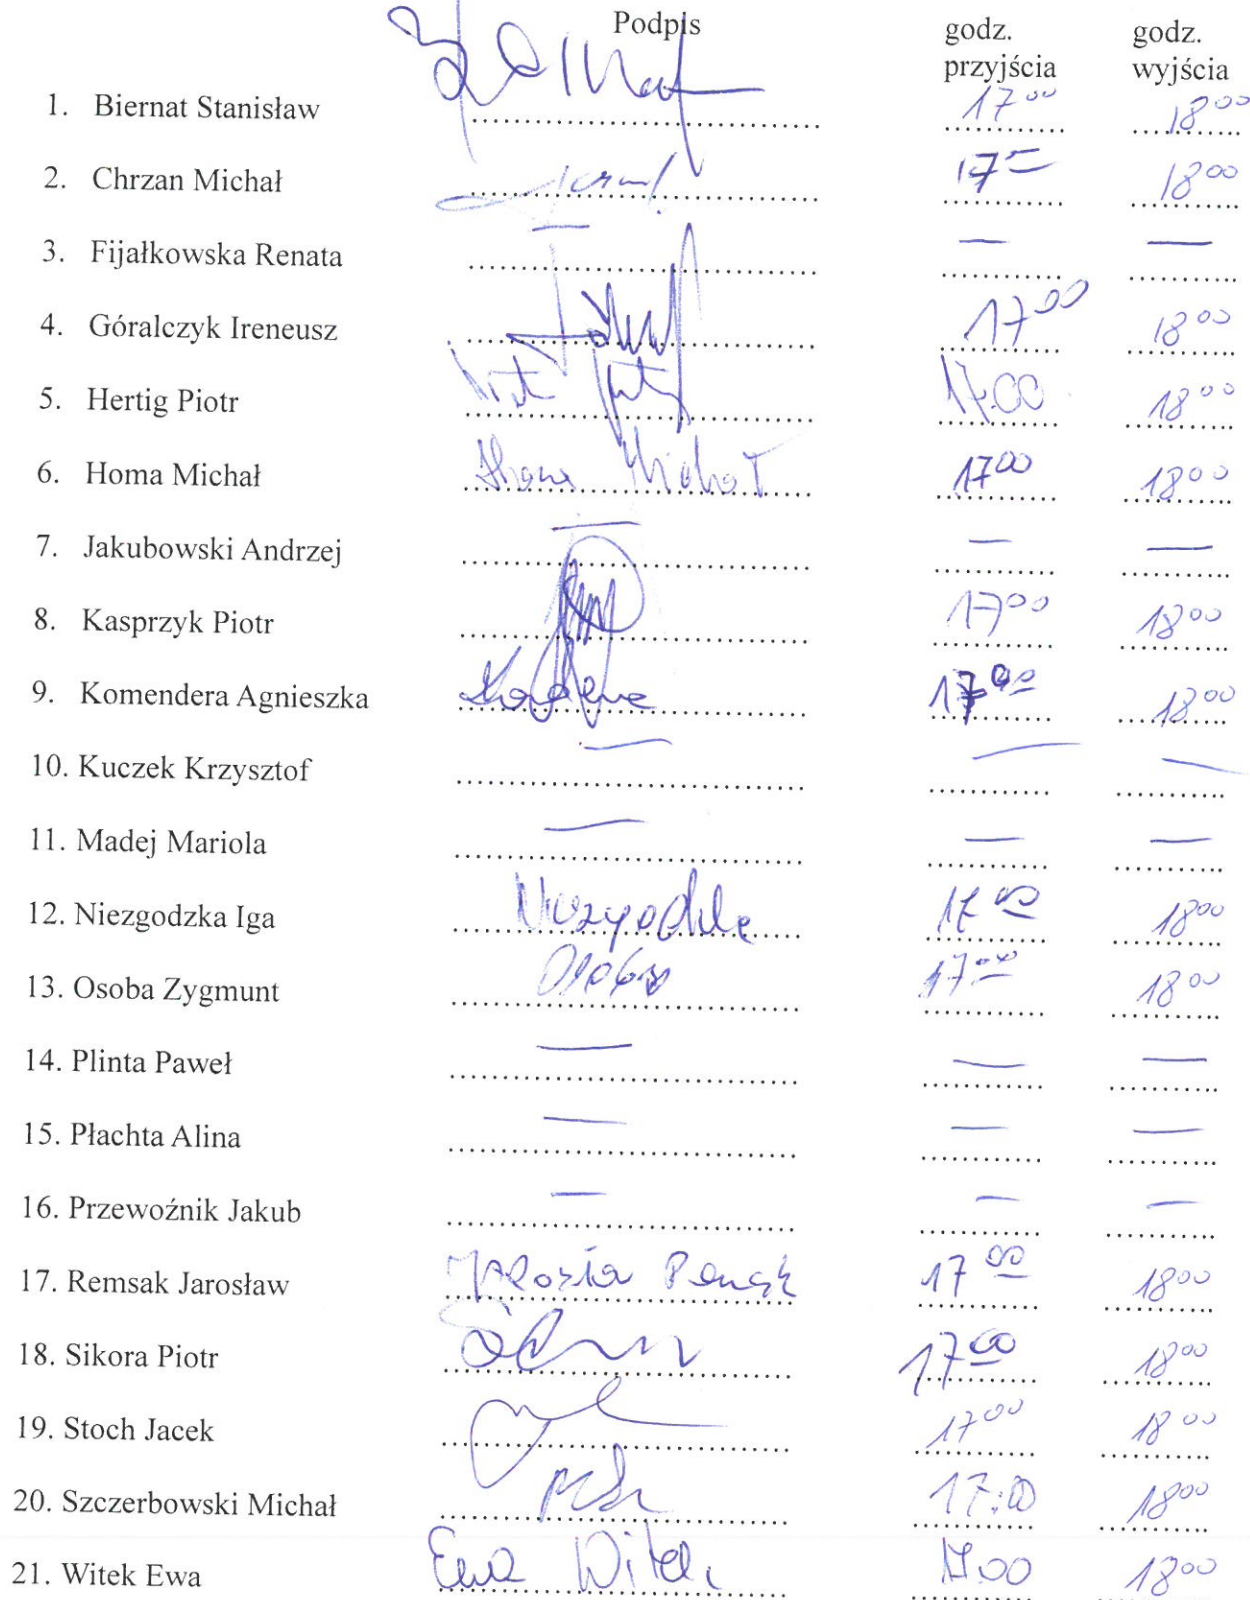 Podpis godz. przyjścia godz. wyjścia
1. Biernat Stanisław 17 00 18 00
2. Chrzan Michał 17 = 18 00
3. Fijałkowska Renata — — —
4. Góralczyk Ireneusz 17 00 18 00
5. Hertig Piotr 17.00 18 00
6. Homa Michał Homa Michał 17 00 18 00
7. Jakubowski Andrzej — — —
8. Kasprzyk Piotr 17 00 18 00
9. Komendera Agnieszka 17 00 18 00
10. Kuczek Krzysztof — — —
11. Madej Mariola — — —
12. Niezgodzka Iga 17 00 18 00
13. Osoba Zygmunt Osoba 17 00 18 00
14. Plinta Paweł — — —
15. Płachta Alina — — —
16. Przewoźnik Jakub — — —
17. Remsak Jarosław 17 00 18 00
18. Sikora Piotr 17 00 18 00
19. Stoch Jacek 17 00 18 00
20. Szczerbowski Michał 17:00 18 00
21. Witek Ewa Ewa Witek 17.00 18 00